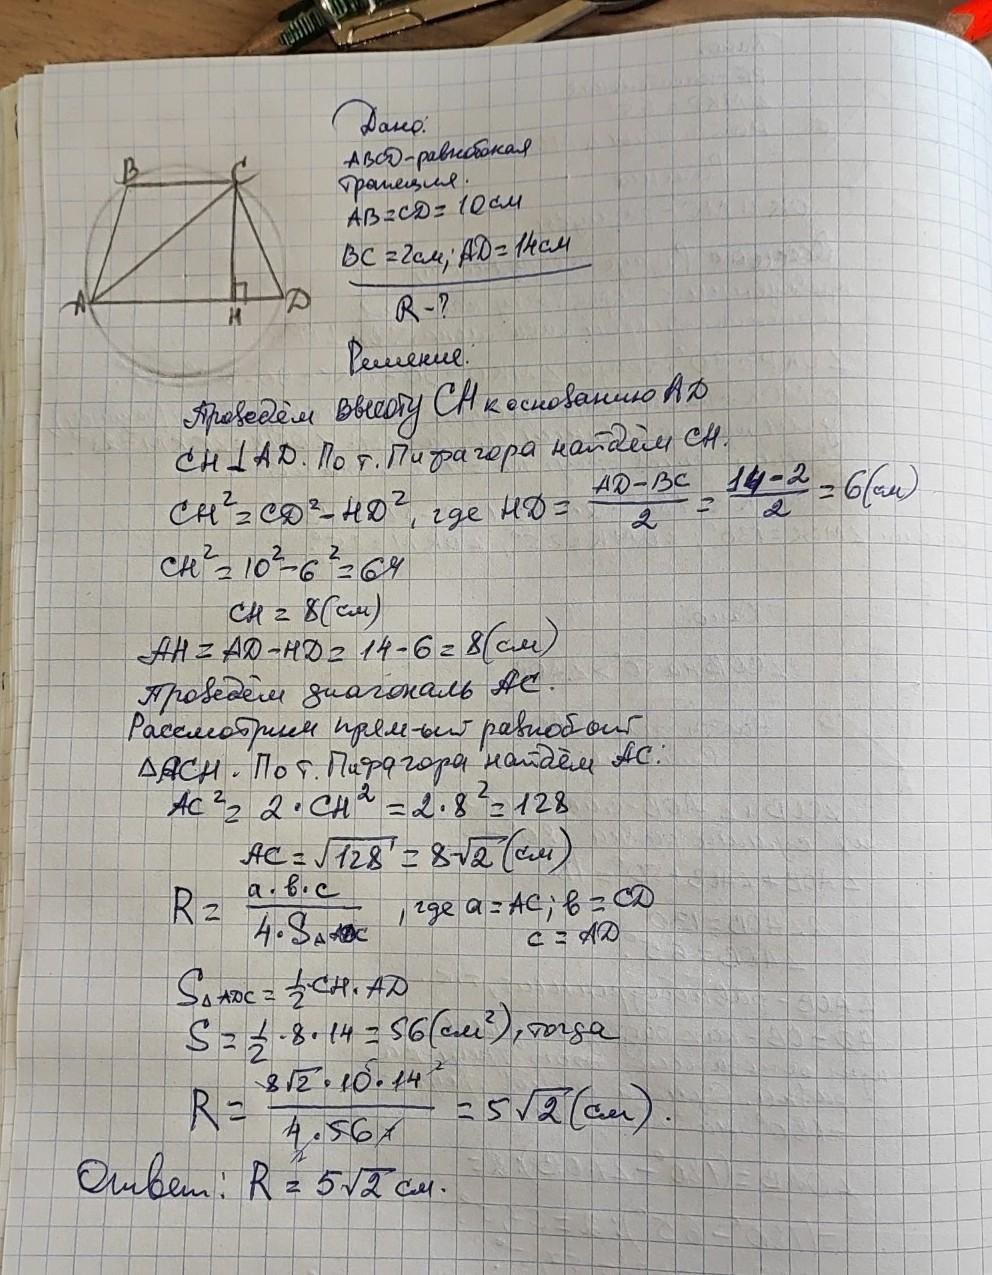 B C
A H D
Дано:
ABCD-равнобокая
трапеция.
AB=CD=10см
BC=2см; AD=14см
R-?
Решение:
Проведём высоту CH к основанию AD
CH⊥AD. По т. Пифагора найдём CH.
CH²=CD²-HD², где HD = (AD-BC)/2 = (14-2)/2 = 6(см)
CH²=10²-6²=64
CH = 8(см)
AH = AD-HD = 14-6 = 8(см)
Проведём диагональ AC.
Рассмотрим прям-ый равнобокий
△ACH. По т. Пифагора найдём AC:
AC² = 2·CH² = 2·8² = 128
AC = √128 = 8√2 (см)
R = (a·в·c)/(4·S△ADC), где a=AC; в=CD
c=AD
S△ADC = 1/2·CH·AD
S = 1/2·8·14 = 56(см²), тогда
R = (8√2·10·14)/(4·56) = 5√2 (см).
Ответ: R = 5√2 см.